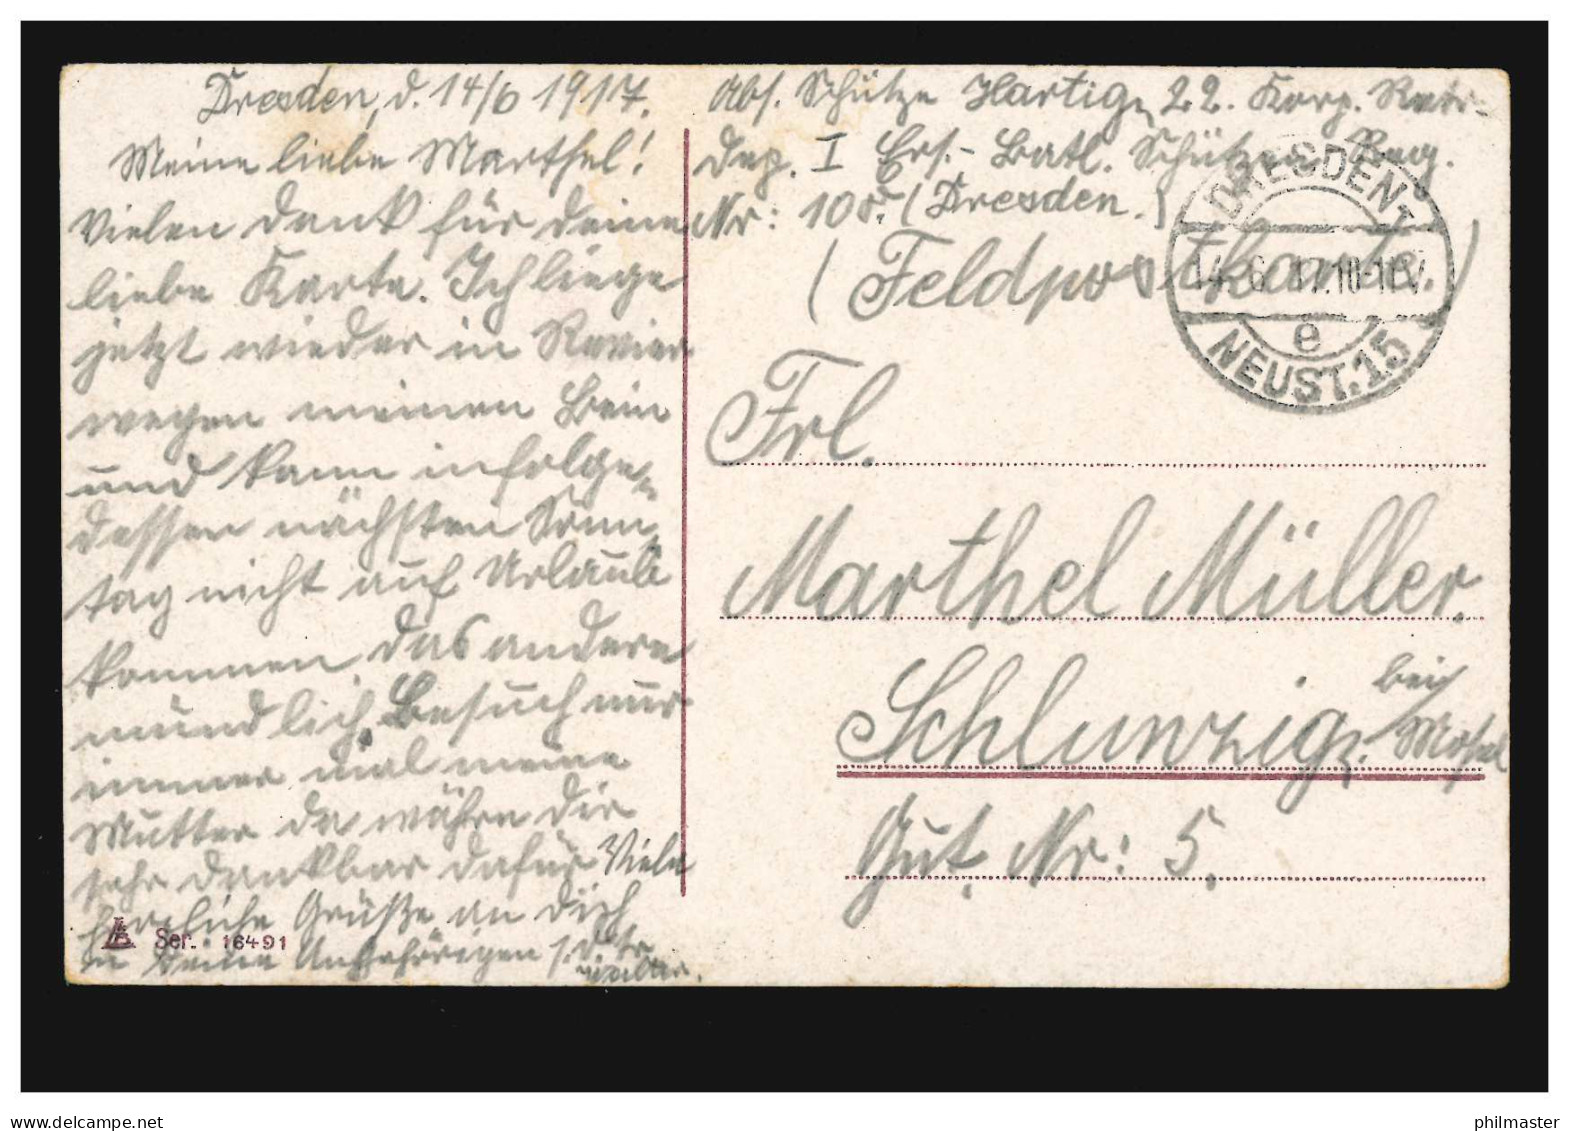 Dresden, d. 14/6 1917.
Meine liebe Marthel!
Vielen Dank für Deine
liebe Karte. Ich liege
jetzt wieder im Revier
wegen meinen Bein
und kann infolge-
dessen nächsten Sonn-
tag nicht auf Urlaub
kommen, das andere
mündlich. Besuch nur
immer mal meine
Mutter da wäre Dir
sehr dankbar dafür Viele
herzliche Grüße an Dich
u. Deine Angehörigen
Ser. 16491
Abs. Schütze Hartig, 22. Korp. Rekr.
Dep. I Ers.-Batl. Schützen Reg.
Nr: 108. (Dresden.)
(Feldpostkarte.)
DRESDEN
14.6.17.10-11V.
e
NEUST.15
Frl.
Marthel Müller.
Schlunzig. bei Mosel
Gut. Nr: 5.
philmaster
www.delcampe.net